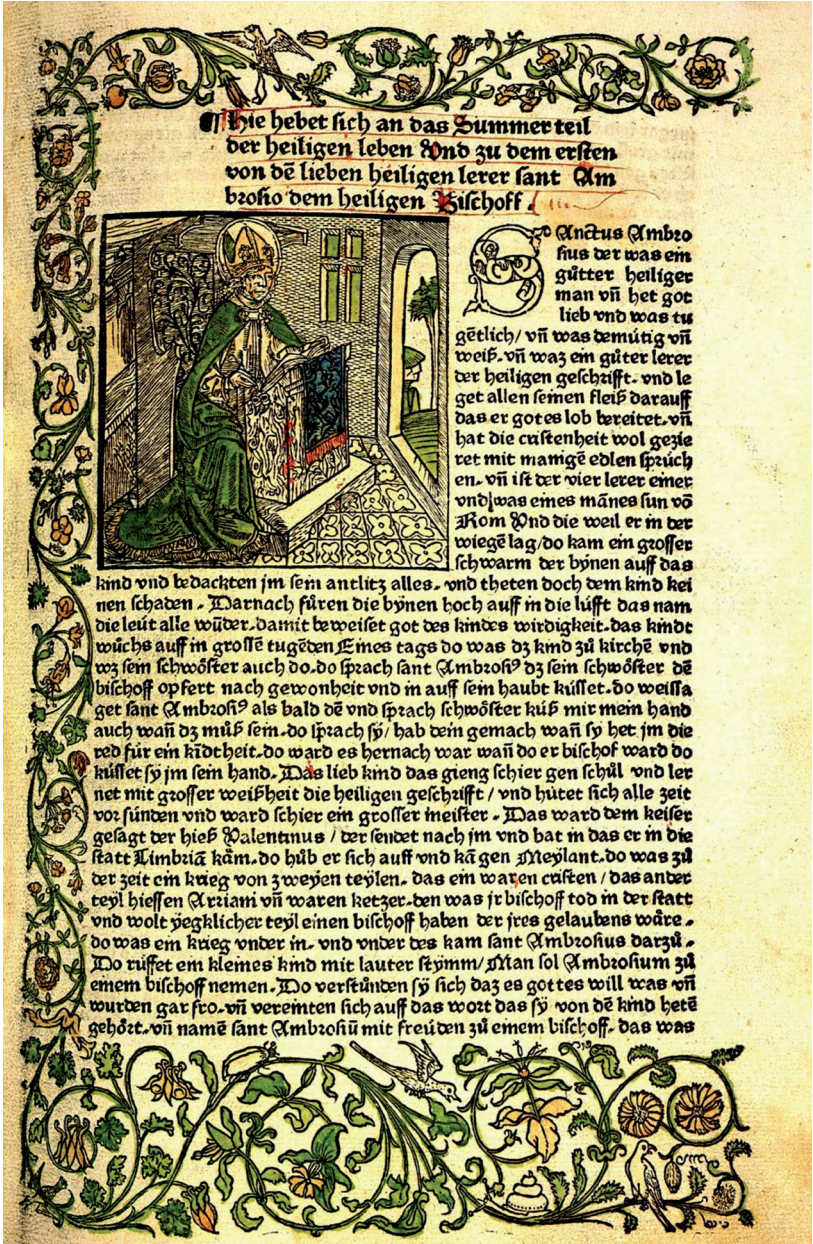 ¶ Hie hebet sich an das Summer teil
der heiligen leben Vnd zu dem ersten
von dē lieben heiligen lerer sant Am
brosio dem heiligen Bischoff.
SAnctus Ambro
sius der was ein
gůtter heiliger
man vñ het got
lieb vnd was tu
gētlich/ vñ was demůtig vñ
weiß. vñ waz ein gůter lerer
der heiligen geschrifft. vnd le
get allen seinen fleiß darauff
das er gotes lob bereitet. vñ
hat die cristenheit wol gezie
ret mit manigē edlen sprüch
en. vñ ist der vier lerer einer
vnd was eines mānes sun vō
Rom Vnd die weil er in der
wiegē lag/do kam ein grosser
schwarm der bynen auff das
kind vnd bedackten jm sein antlitz alles. vnd theten doch dem kind kei
nen schaden. Darnach fůren die bynen hoch auff in die lüfft das nam
die leüt alle wūder. damit beweiset got des kindes wirdigkeit. das kindt
wůchs auff in grossē tugēden Eines tags do was dz kind zů kirchē vnd
wz sein schwöster auch do. do sprach sant Ambrosiꝰ dz sein schwöster dē
bischoff opfert nach gewonheit vnd in auff sein haubt küsset. do weissa
get sant Ambrosiꝰ als bald dē vnd sprach schwöster küß mir mein hand
auch wañ dz můß sein. do sprach sÿ/ hab dein gemach wañ sy het jm die
red für ein kīdtheit. do ward es hernach war wañ do er bischof ward do
küsset sy jm sein hand. Das lieb kind das gieng schier gen schůl vnd ler
net mit grosser weißheit die heiligen geschrifft / vnd hůtet sich alle zeit
vor sünden vnd ward schier ein grosser meister. Das ward dem keiser
gesagt der hieß Valentinus / der sendet nach jm vnd bat in das er in die
statt Limbriā kām. do hůb er sich auff vnd kā gen Meylant. do was zů
der zeit ein krieg von zweyen teylen. das ein waren cristen / das ander
teyl hiessen Arriani vñ waren ketzer. den was jr bischoff tod in der statt
vnd wolt yegklicher teyl einen bischoff haben der jres gelaubens wäre.
do was ein krieg vnder in. vnd vnder des kam sant Ambrosius darzů.
Do rüffet ein kleines kind mit lauter stymm/ Man sol Ambrosium zů
einem bischoff nemen. Do verstůnden sÿ sich daz es gottes will was vñ
wurden gar fro. vñ vereinten sich auff das wort das sÿ von dē kind hetē
gehört. vñ namē sant Ambrosiū mit freüden zů einem bischoff. das was